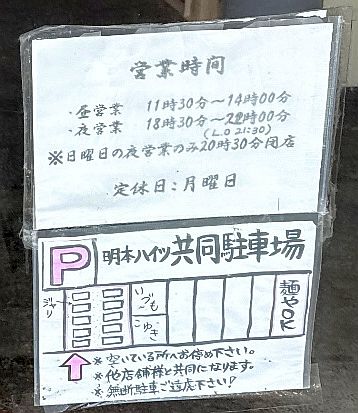 営業時間
・昼営業 11時30分〜14時00分
・夜営業 18時30分〜22時00分
(L.O 21:30)
※日曜日の夜営業のみ20時30分閉店
定休日：月曜日
P 明本ハイツ共同駐車場
ジャリ
いづも
こゆき
麺やOK
※空いている所へお停め下さい。
※他店舗様と共同になります。
※無断駐車ご遠慮下さい!